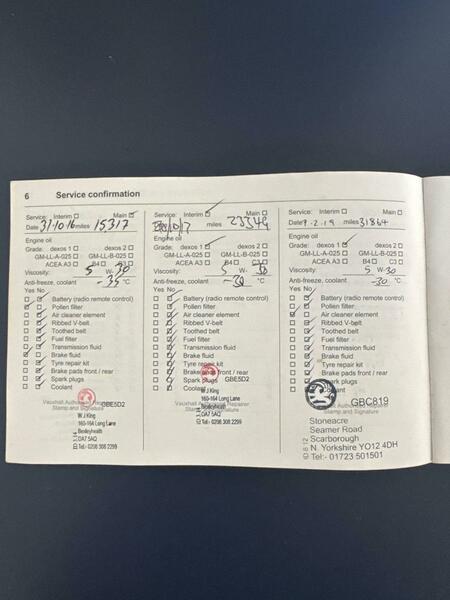 6 Service confirmation
Service: Interim Main
Date 31-10-16 miles 15317
Engine oil
Grade: dexos 1 dexos 2
GM-LL-A-025 GM-LL-B-025
ACEA A3 B4 C3
Viscosity: 5 W- 30
Anti-freeze, coolant - 35 °C
Yes No
Battery (radio remote control)
Pollen filter
Air cleaner element
Ribbed V-belt
Toothed belt
Fuel filter
Transmission fluid
Brake fluid
Tyre repair kit
Brake pads front / rear
Spark plugs
Coolant
GBE5D2
Vauxhall Authorised Repairer
Stamp and Signature
W J King
160-164 Long Lane
Bexleyheath
DA7 5AQ
Tel:- 0208 308 2299
Service: Interim Main
10/17 miles 23349
Engine oil
Grade: dexos 1 dexos 2
GM-LL-A-025 GM-LL-B-025
ACEA A3 B4 C3
Viscosity: 5 W- 30
Anti-freeze, coolant -30 °C
Yes No
Battery (radio remote control)
Pollen filter
Air cleaner element
Ribbed V-belt
Toothed belt
Fuel filter
Transmission fluid
Brake fluid
Tyre repair kit
Brake pads front / rear
Spark plugs
Coolant
GBE5D2
Vauxhall Authorised Repairer
Stamp and Signature
W J King
160-164 Long Lane
Bexleyheath
DA7 5AQ
Tel:- 0208 308 2299
Service: Interim Main
Date 9-2-19 miles 31864
Engine oil
Grade: dexos 1 dexos 2
GM-LL-A-025 GM-LL-B-025
ACEA A3 B4 C3
Viscosity: 5 W-30
Anti-freeze, coolant -30 °C
Yes No
Battery (radio remote control)
Pollen filter
Air cleaner element
Ribbed V-belt
Toothed belt
Fuel filter
Transmission fluid
Brake fluid
Tyre repair kit
Brake pads front / rear
Spark plugs
Coolant
GBC819
Authorised Repairer
Stamp and Signature
Stoneacre
Seamer Road
Scarborough
N. Yorkshire YO12 4DH
Tel:- 01723 501501